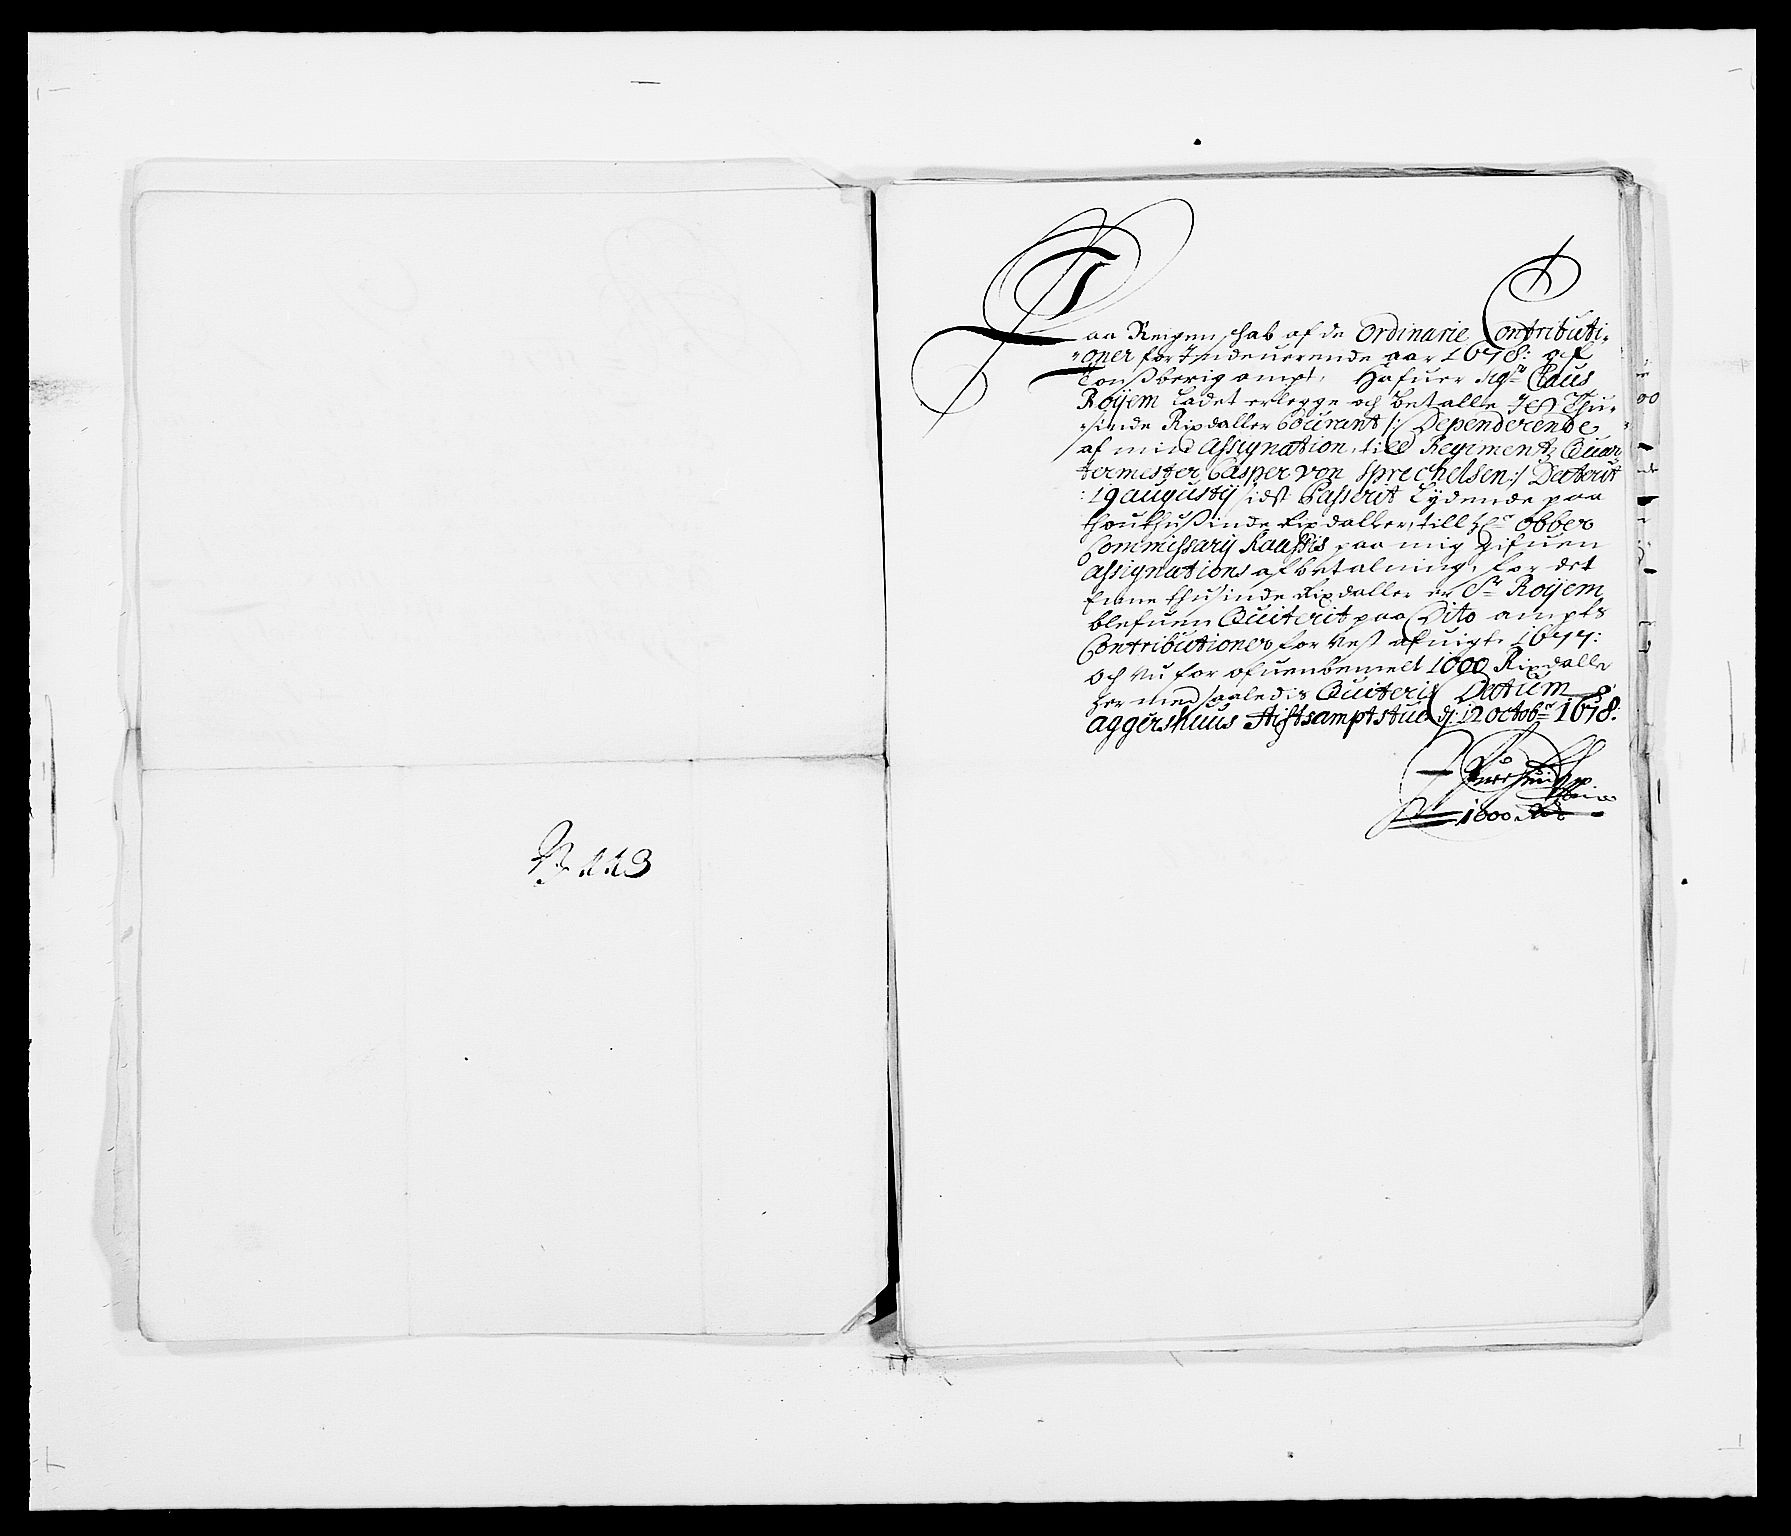 N 113
Paa Reigenschab af de Ordinarie Contributi-
oner for Indeuerende aar 1678: aff
Tonßberig ampt, Hafuer Sigr Claus
Röyem Ladet erlegge och betalle Thu-
sinde Rixdaller Courant /: Dependerende
af mind Assignation till Regiments Quar
termester Casper von Sprechelsen :/ Daterit
19 augustij sidst Passerit Lydende paa
thouthußinde Rixdaller, till Hr Obber
Commissary Kauffis paa mig gifuen
assignations afbetalning, for det
Enne thusinde Rixdaller er Sr Röyem
blefuen Quiterit paa Dito ampts
Contributioner for Nest afuigte 1677:
och Nu for ofuenbemelt 1000 Rixdaller
her med saaledis Quiteris Datum
aggershuus Stiftsamptstue dj 12 octobr 1678:
1000 Rdr